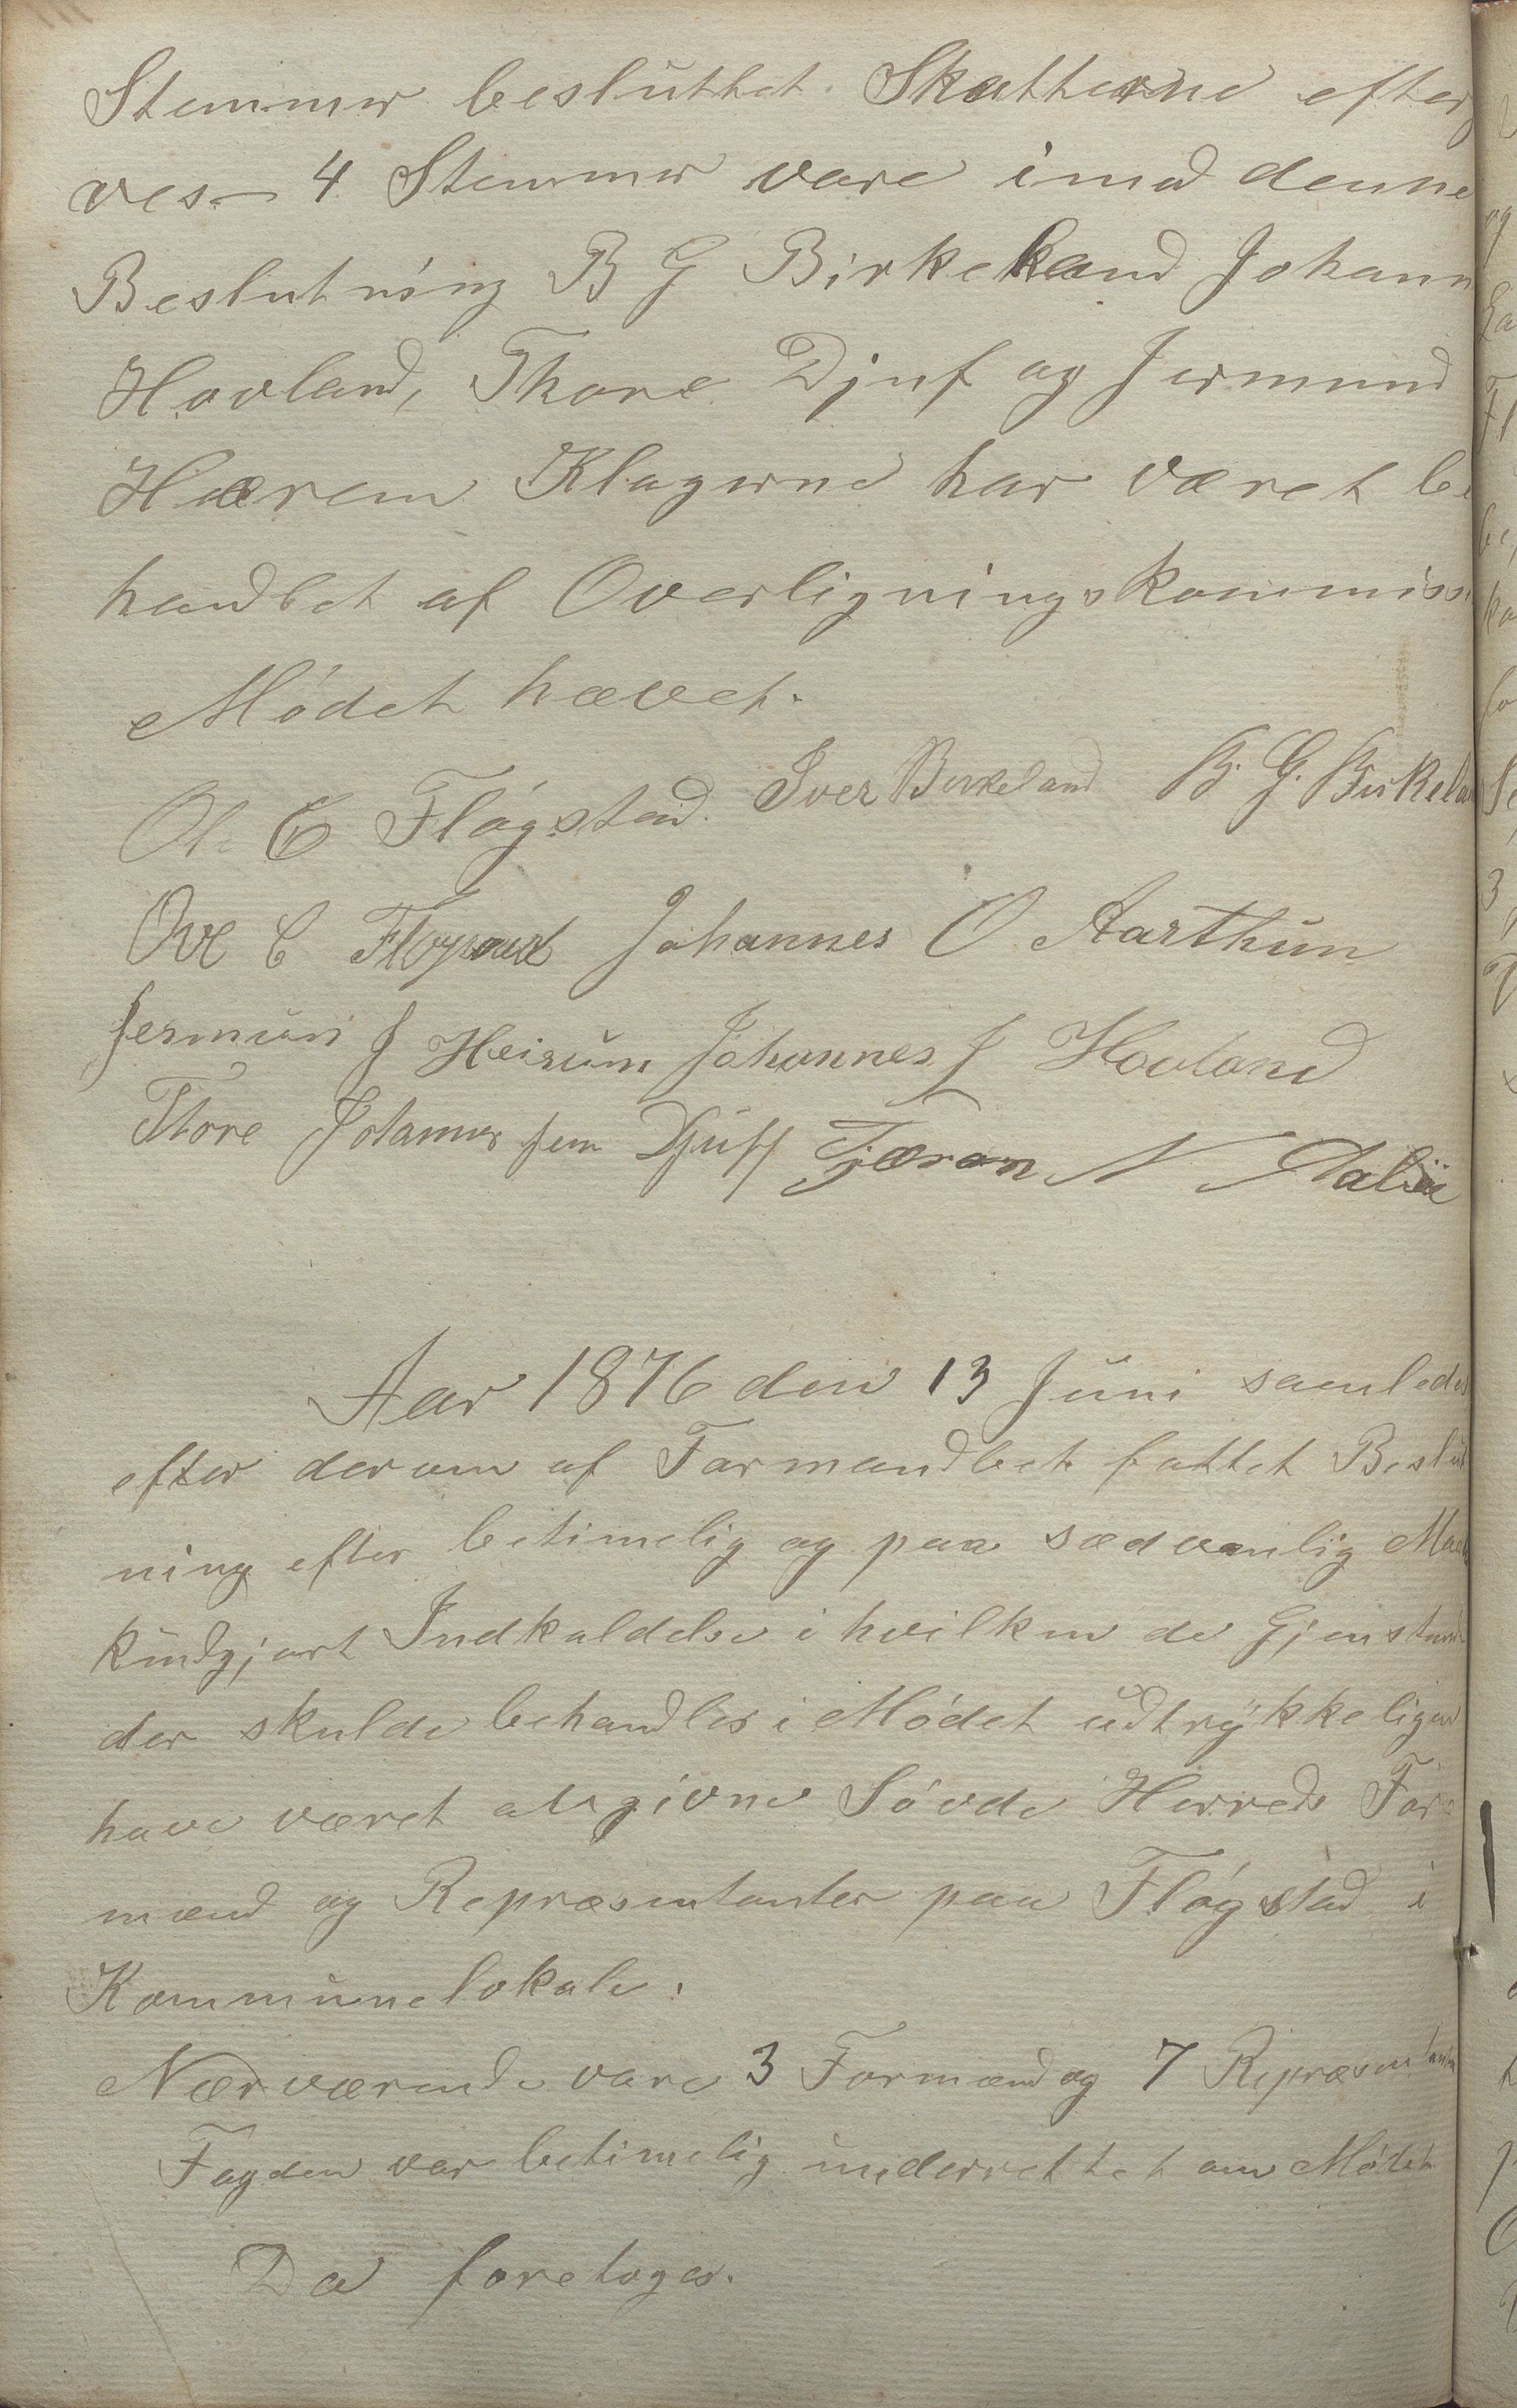 Stemmer besluttet. Skatterne efterg
ves 4 Stemmer vare imod denne
Beslutning B G Birkeland Johann
Hovland, Thore Djuf og Jermund
Hærem Klagerne har været be
handlet af Overligningskommiss
Mödet hævet.
Ol. E Flógstad. Iver Birkeland B. G. Birkelan
Ove C Johannes O Aarthun
Jermun J Heirum Johannes J Hovland
Thore Johannes sen Djuff Tjæran N
Aar 1876 den 13 Juni samledes
efter derom af Formandlet fattet Beslut
ning efter betimelig og paa sædvanlig Maa
kundgjort Indkaldelse i hvilken de Gjenstand
der skulde behandles i Mödet udtrykkeligen
have været angivne Sövde Herreds For
mænd og Repræsentanter paa Flógstad i
Kommunelokale.
Nærværende vare 3 Formænd og 7 Repræsentanter
Fogden var betimelig underrettet om Mödet
Da foretoges.